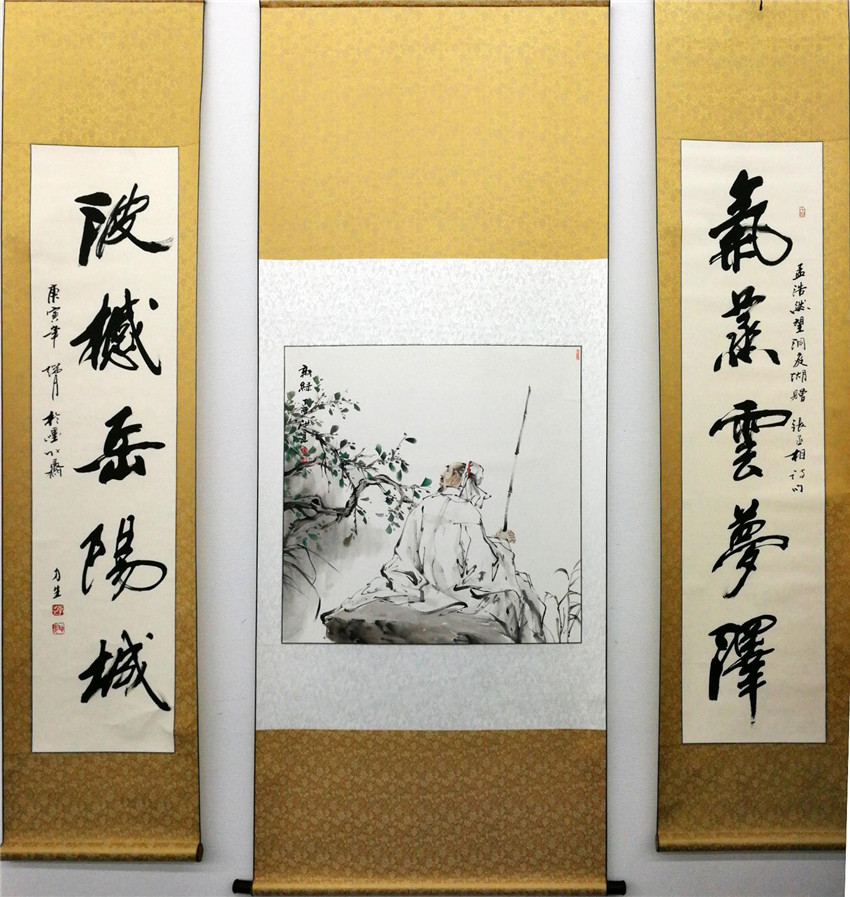 氣蒸雲夢澤
孟浩然望洞庭湖贈張丞相詩句
波撼岳陽城
庚寅年
於墨
力生